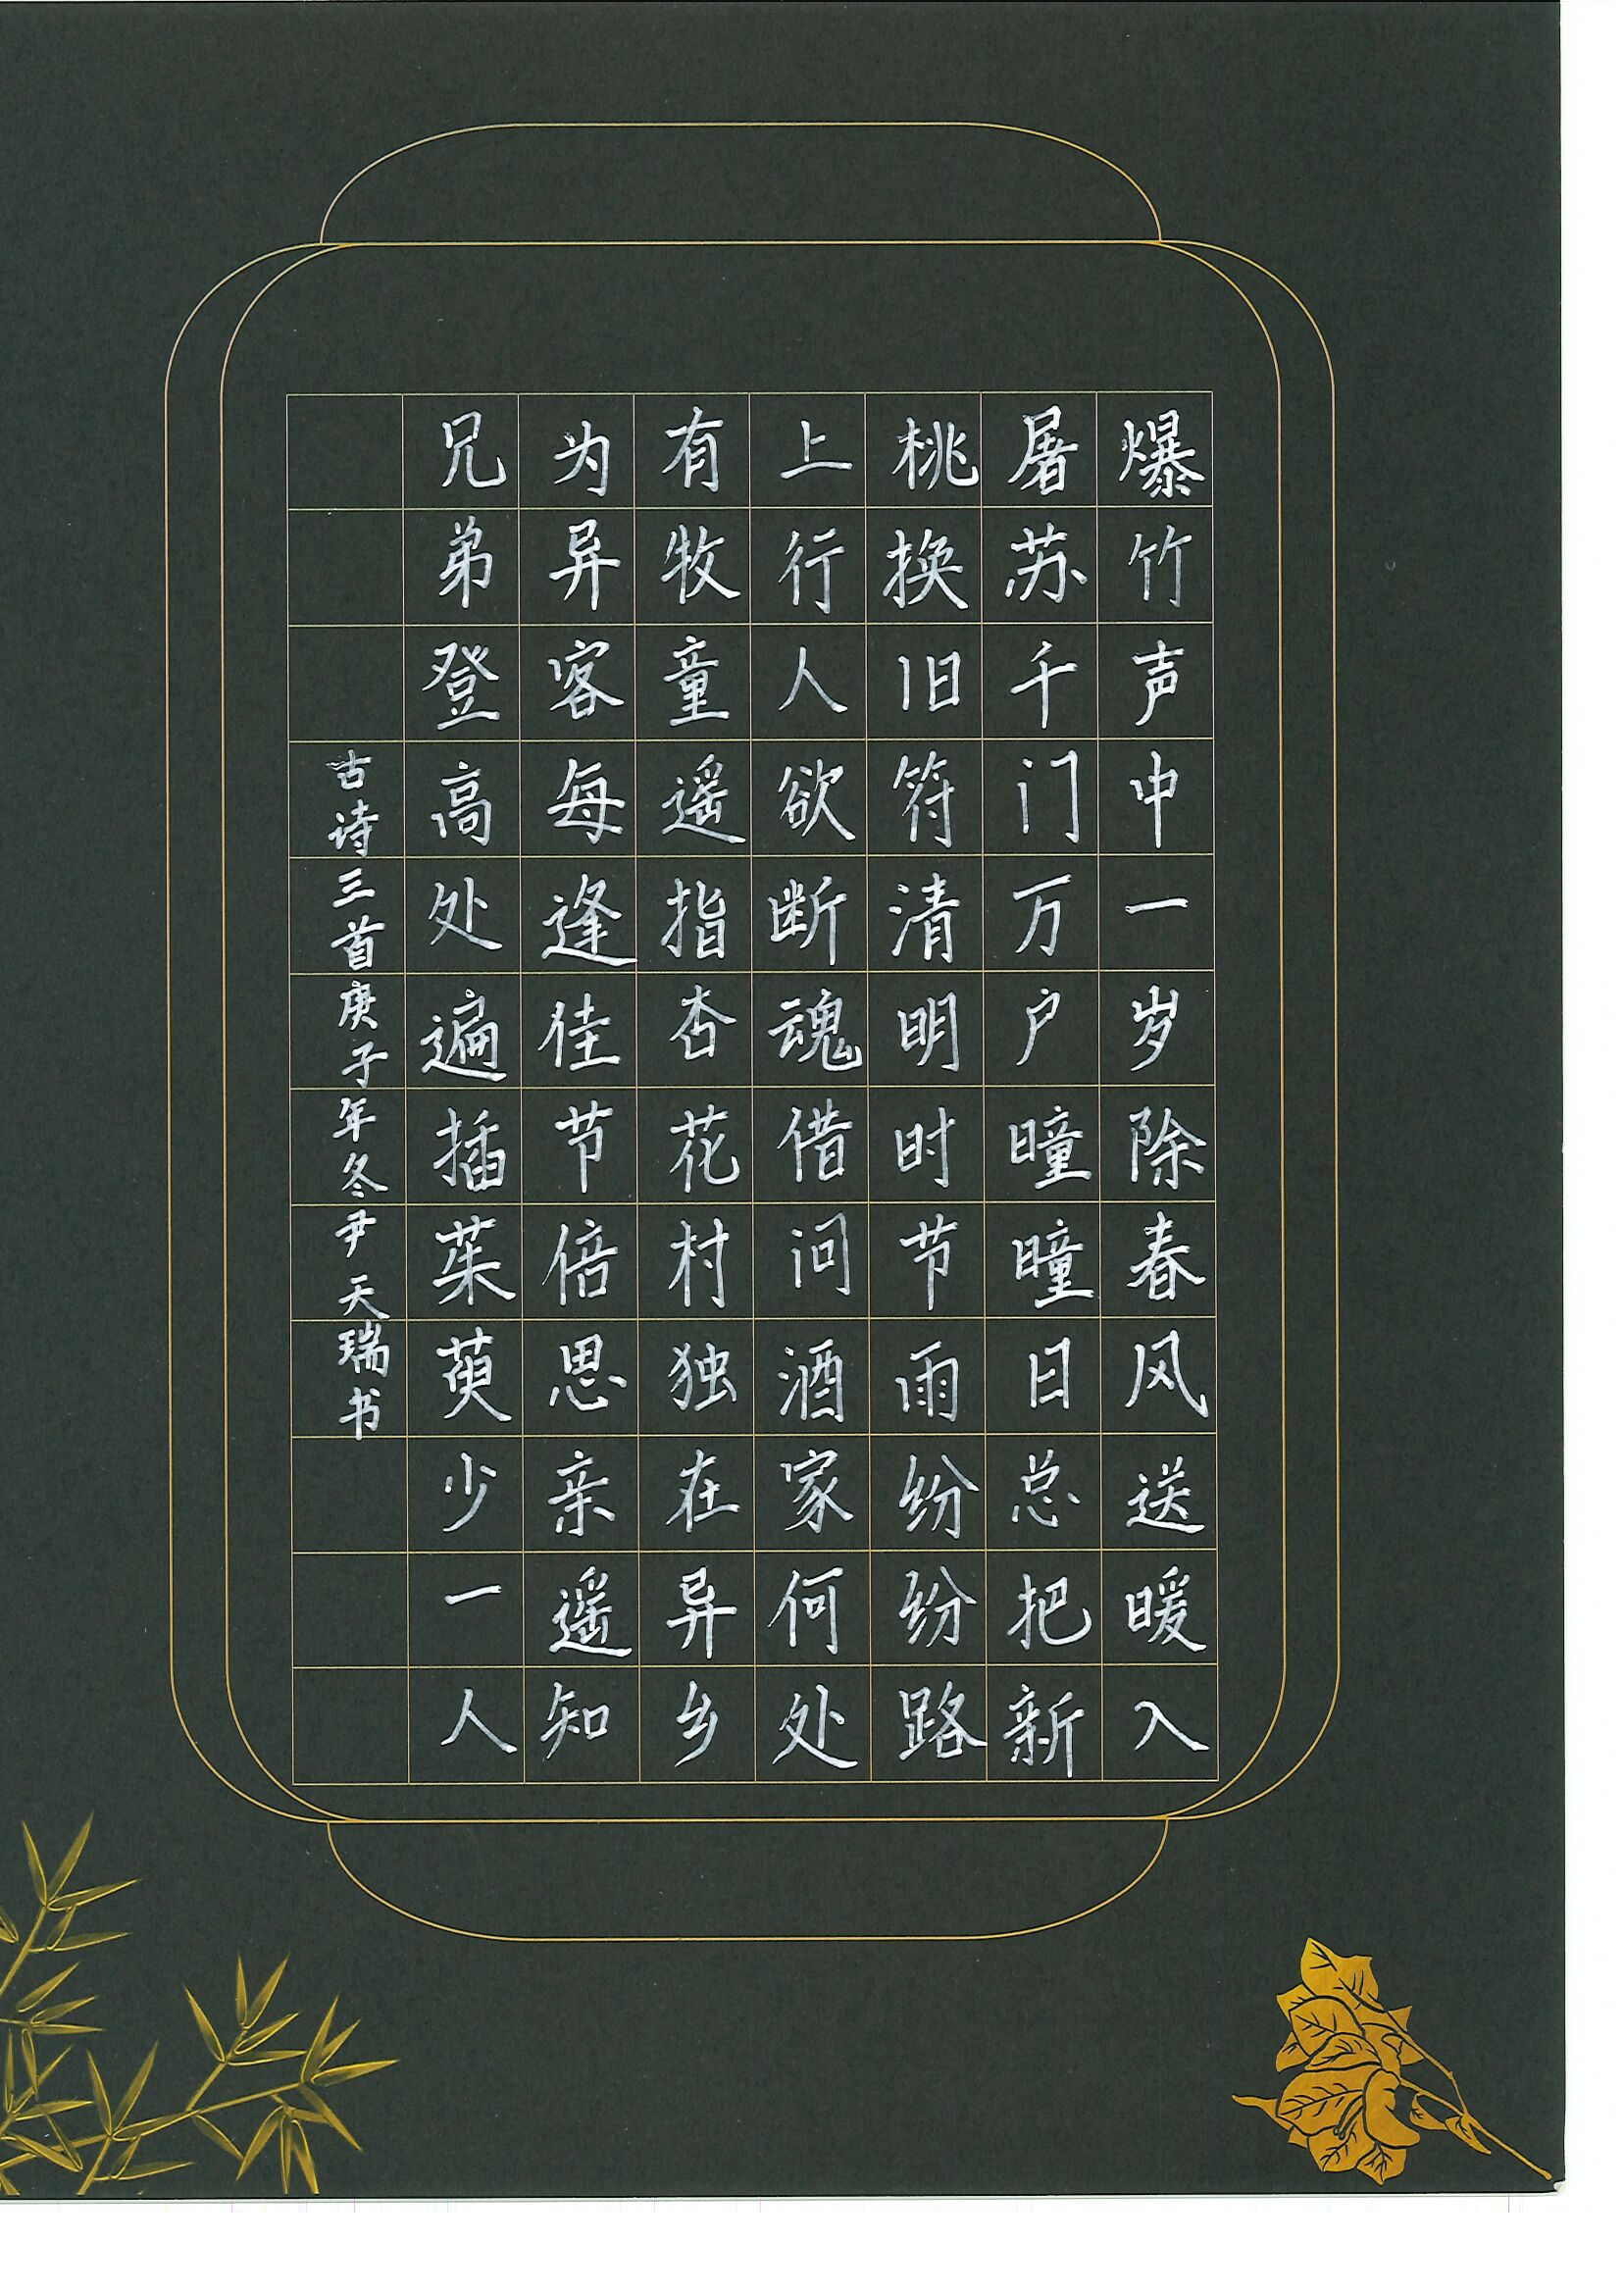 爆竹声中一岁除春风送暖入
屠苏千门万户曈曈日总把新
桃换旧符清明时节雨纷纷路
上行人欲断魂借问酒家何处
有牧童遥指杏花村独在异乡
为异客每逢佳节倍思亲遥知
兄弟登高处遍插茱萸少一人
古诗三首庚子年冬尹天瑞书